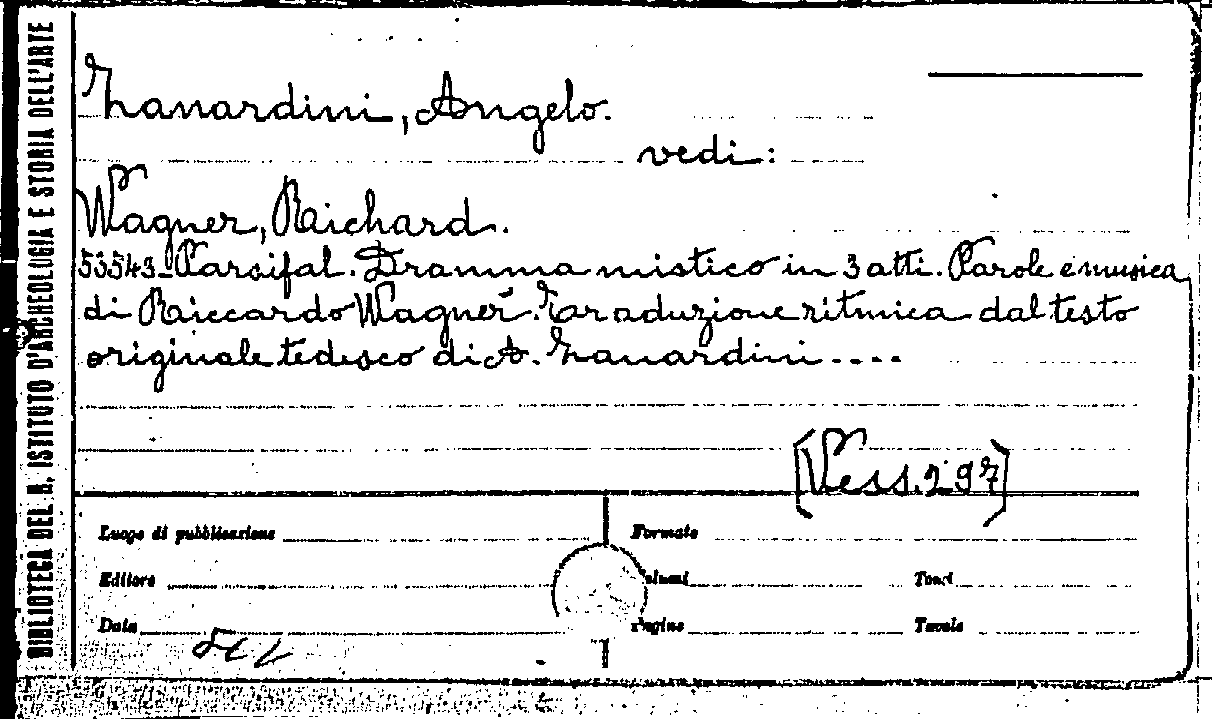 BIBLIOTECA DEL R. ISTITUTO D'ARCHEOLOGIA E STORIA DELL'ARTE
Zanardini, Angelo.
vedi:
Wagner, Riichard.
53543-Parsifal. Dramma mistico in 3 atti. Parole e musica
di Riccardo Wagner. Traduzione ritmica dal testo
originale tedesco di A. Zanardini....
[Vess. 297]
Luogo di pubblicazione
Formato
Editore
Tomi
Data
Pagine
Tavole